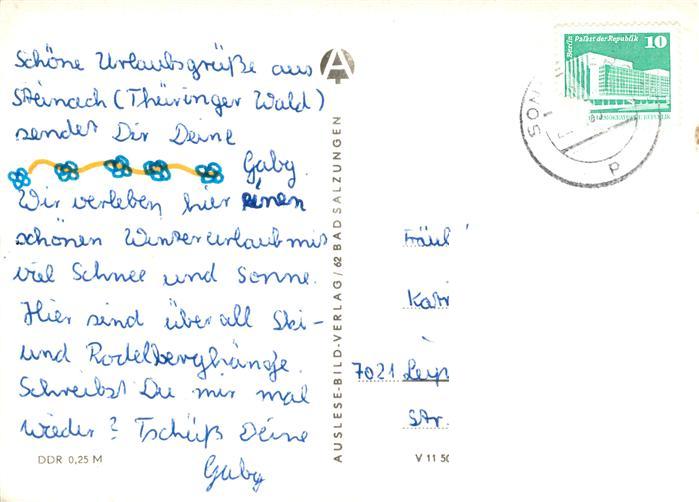 Schöne Urlaubsgrüße aus
Steinach (Thüringer Wald)
sendet Dir Deine
Gaby.
Wir verleben hier einen
schönen Winterurlaub mit
viel Schnee und Sonne.
Hier sind überall Ski-
und Rodelberghänge.
Schreibst Du mir mal
wieder? Tschüß Deine
Gaby
DDR 0,25 M
AUSLESE-BILD-VERLAG / 62 BAD SALZUNGEN
Berlin Palast der Republik 10
SON
Fräul
Kat
7021 Leip
Str.
V 11 50